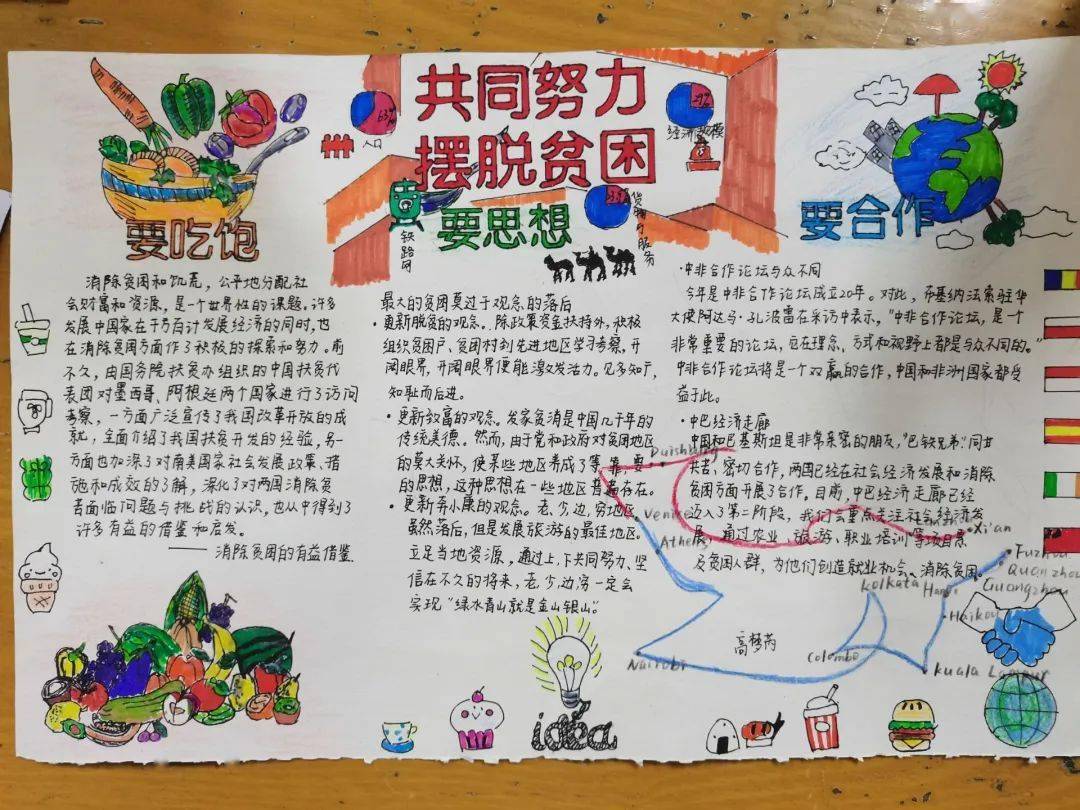 共同努力
摆脱贫困
63%
人口
29%
经济规模
23.9%
货物与服务
铁路网
要吃饱
消除贫困和饥荒，公平地分配社
会财富和资源，是一个世界性的课题。许多
发展中国家在千方百计发展经济的同时，也
在消除贫困方面作了积极的探索和努力。前
不久，由国务院扶贫办组织的中国扶贫代
表团对墨西哥、阿根廷两个国家进行了访问
考察，一方面广泛宣传了我国改革开放的成
就，全面介绍了我国扶贫开发的经验，另一
方面也加深了对南美国家社会发展政策、措
施和成效的了解，深化了对两国消除贫
困面临问题与挑战的认识，也从中得到了
许多有益的借鉴和启发。
——消除贫困的有益借鉴
要思想
最大的贫困莫过于观念的落后
·更新脱贫的观念。除政策资金扶持外，积极
组织贫困户、贫困村到先进地区学习考察，开
阔眼界，开阔眼界便能激发活力。见多知广，
知耻而后进。
·更新致富的观念。发家贫消是中国几千年的
传统美德。然而，由于党和政府对贫困地区
的莫大关怀，使某些地区养成了等、靠、要
的思想，这种思想在一些地区普遍存在。
·更新奔小康的观念。老、少、边、穷地区
虽然落后，但是发展旅游的最佳地区。
立足当地资源，通过上、下共同努力、坚
信在不久的将来，老、少、边、穷一定会
实现“绿水青山就是金山银山”。
idea
要合作
·中非合作论坛与众不同
今年是中非合作论坛成立20年。对此，布基纳法索驻华
大使阿达马·孔波雷在采访中表示，“中非合作论坛，是一个
非常重要的论坛，应在理念、方式和视野上都是与众不同的。”
中非合作论坛将是一个双赢的合作，中国和非洲国家都受
益于此。
·中巴经济走廊
中国和巴基斯坦是非常亲密的朋友，“巴铁兄弟”同甘
共苦，密切合作，两国已经在社会经济发展和消除
贫困方面开展了合作。目前，中巴经济走廊已经
迈入了第二阶段，我们会重点关注社会经济发
展，通过农业、旅游、职业培训等项目惠
及贫困人群，为他们创造就业机会、消除贫困。
Venice
Athens
Xi'an
Fuzhou
Quanzhou
Guangzhou
Kolkata
Haikou
Nairobi
Colombo
Kuala Lumpur